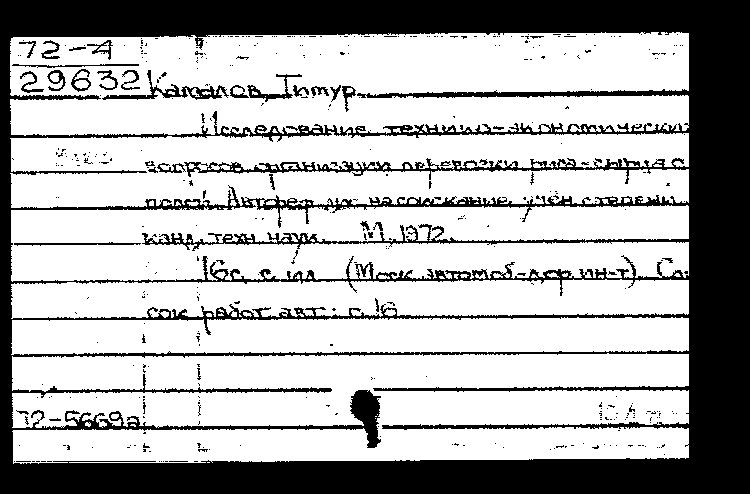 72-4
29632 Камалов, Тимур.
Исследование технико-экономических
вопросов организации перевозки риса-сырца с
полей. Автореф. дис. на соискание учен. степени
канд. техн. наук. М., 1972.
16 с. с ил. (Моск. автомоб.-дор. ин-т). Спи
сок работ авт.: с. 16
72-5669а